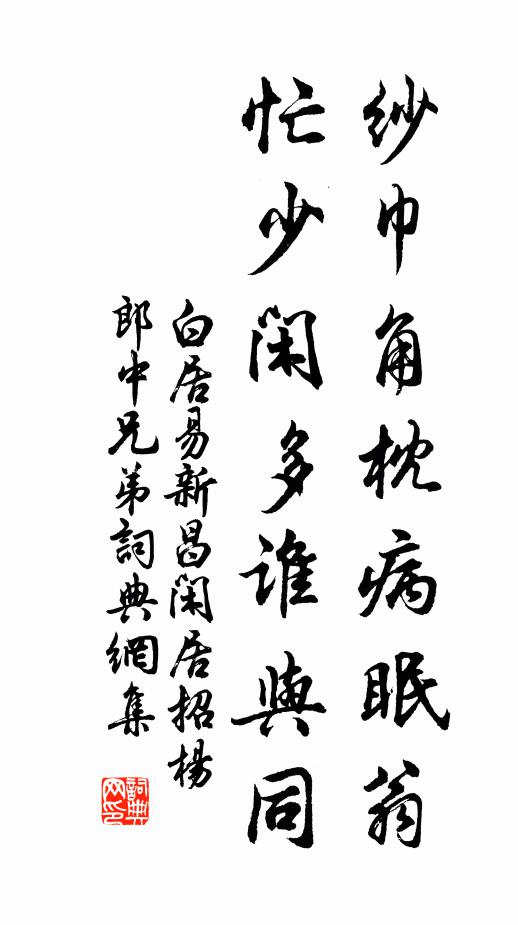 紗巾角枕病眠翁
忙少閑多誰與同
白居易新昌閑居招楊
郎中兄弟詞典網集
詞典
网印